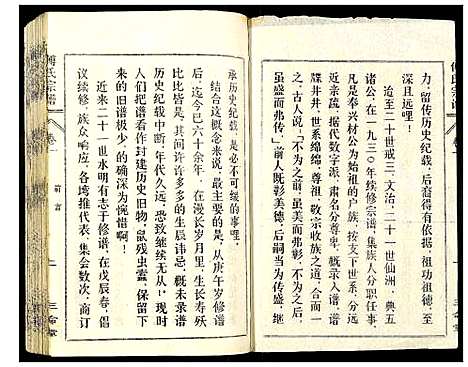 力，留传历史纪载，后裔得有依据，祖功祖德，至
深且远哩！
迨至二十世戒三、文治，二十一世仙洲、典五
诸公，在一九三〇年续修宗谱，集族人分职任事，
凡是奉兴材公为始祖的户族，按支下世系，分别
近亲疏，据代数字派，肃名分尊卑，概录入谱，谱
牒井井，世系绵绵，尊祖、敬宗收族之道，合而有
之。古人说：「不为之前，虽美而弗彰，不为之后，
虽盛而弗传，」前人既彰美德，后嗣当为传盛，继
承历史纪载，是必不可缓的事哩。
结合我们家族的观念来说，最主要的是，从庚午岁修谱
后，迄今已六十余年，在漫长岁月里，生长寿殁，
比比皆是，其中有许许多多的生辰讳忌，概未录谱，
历史纪载中断，年代久远，恐致世系无从！现时
因人们把谱看作封建历史旧物，鼠残虫蠹，保留下
来的旧谱极少，的确深为惋惜啊！
近来二十一世水明有志于修谱，在戊辰春，倡
议续修，族众响应，各塆推代表集会数次，商订
傅氏宗谱
卷一
前言
三本堂